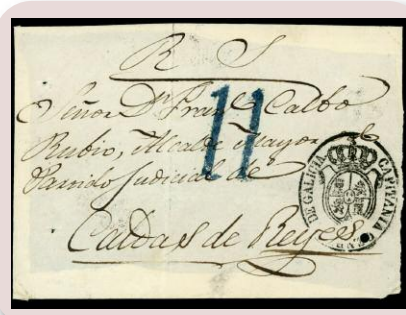 R S
Señor Dⁿ Franᶜᵒ Calbo
Rubio, Alcalde Mayor de
Partido Judicial de
Caldas de Reyes
11
CAPITANIA GENL DE GALICIA